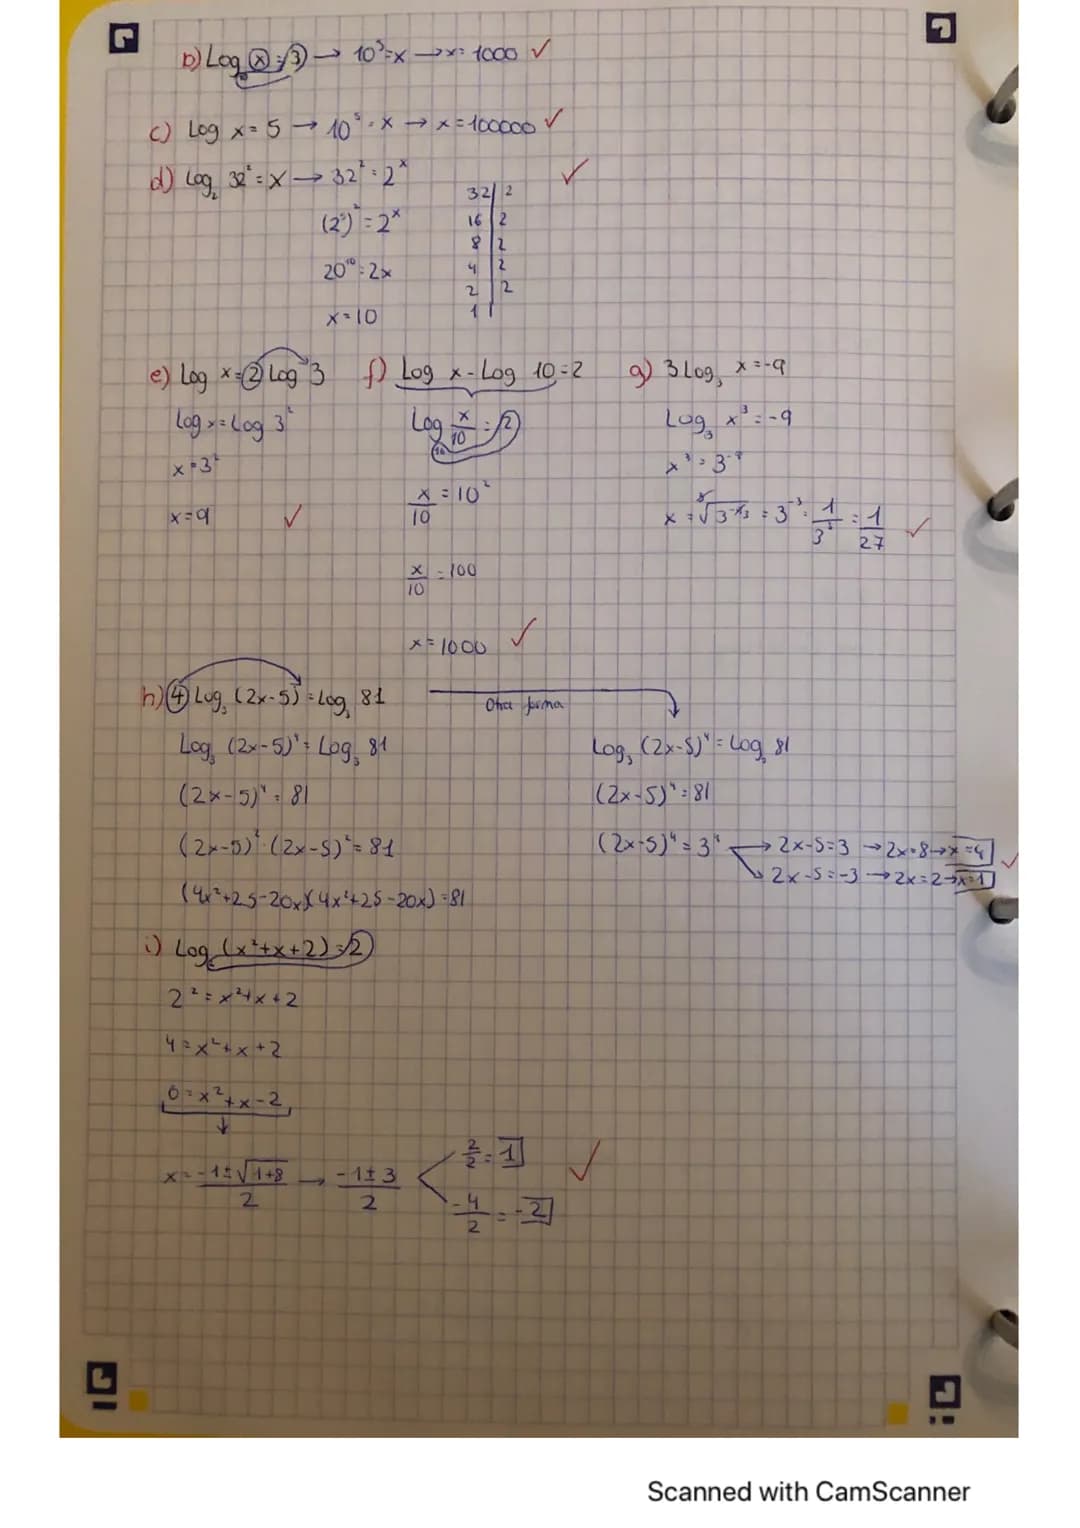 b) Log₁₀ x = 3 → 10³ = x → x = 1000 ✓
c) Log x = 5 → 10⁵ = x → x = 100000 ✓
d) Log₂ 32² = x → 32² = 2ˣ ✓
(2⁵)² = 2ˣ
20¹⁰ = 2x
x = 10
32 | 2
16 | 2
8 | 2
4 | 2
2 | 2
1 |
e) Log x = 2 Log 3
Log x = Log 3²
x = 3²
x = 9 ✓
f) Log x - Log 10 = 2
Log₁₀ x/10 = 2
x/10 = 10²
x/10 = 100
x = 1000 ✓
g) 3 Log₃ x = -9
Log₃ x³ = -9
x³ = 3⁻⁹
x = ³√3⁻⁹/³ = 3⁻³ = 1/3³ = 1/27 ✓
h) 4 Log₃ (2x-5) = Log₃ 81
Log₃ (2x-5)⁴ = Log₃ 81
(2x-5)⁴ = 81
(2x-5)² · (2x-5)² = 81
(4x²+25-20x)(4x²+25-20x) = 81
Otra forma
Log₃ (2x-5)⁴ = Log₃ 81
(2x-5)⁴ = 81
(2x-5)⁴ = 3⁴ → 2x-5=3 → 2x=8 → x=4 ✓
→ 2x-5=-3 → 2x=2 → x=1
i) Log₂ (x²+x+2) = 2
2² = x²+x+2
4 = x²+x+2
0 = x²+x-2
x = -1±√1+8/2 → -1±3/2
2/2 = 1 ✓
-4/2 = -2
Scanned with CamScanner